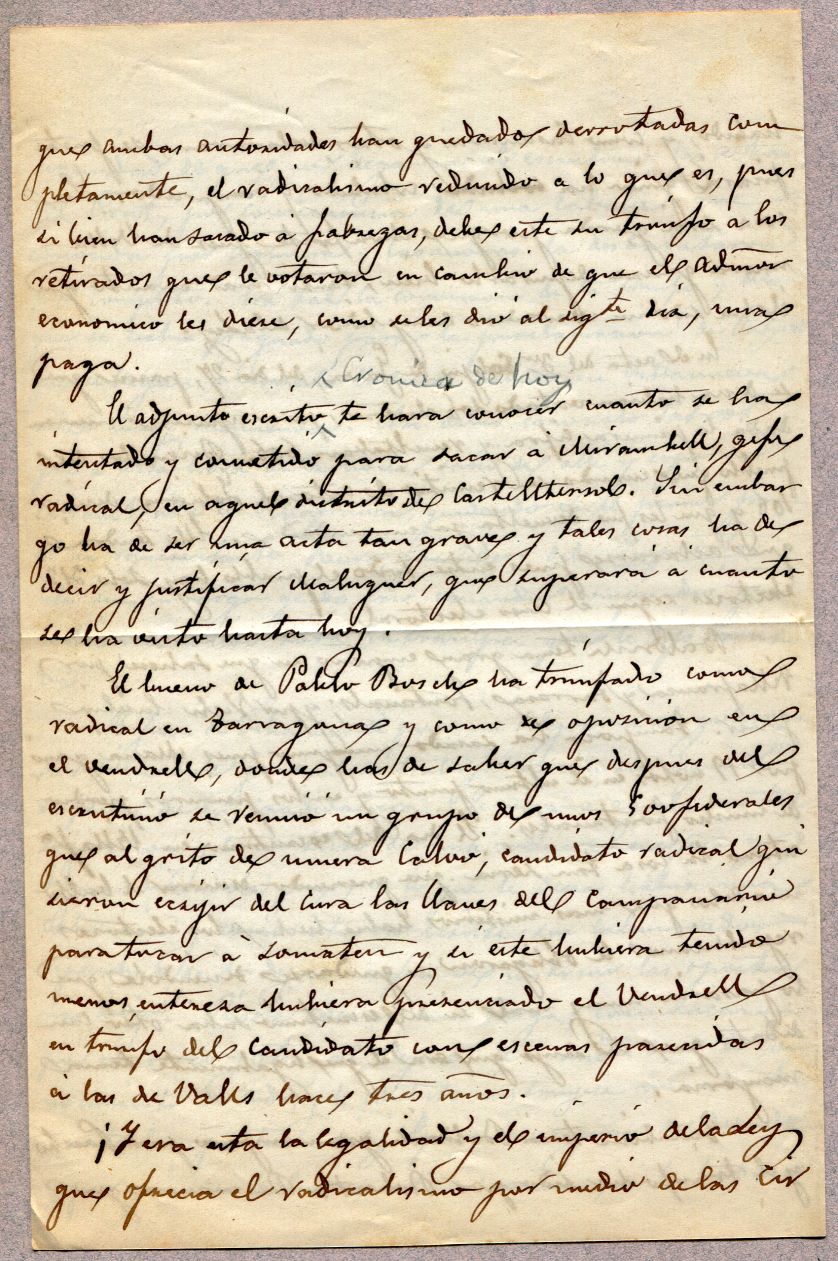 que ambas autoridades han quedado derrotadas com
pletamente, el radicalismo reducido a lo que es, pues
si bien han sacado á Fabregas, debe este su triunfo a los
retirados que le votaron en cambio de que el admor
economico les diese, como se les dió al sigte dia, una
paga.
y Cronica de hoy
El adjunto escrito te hara conocer cuanto se ha
intentado y cometido para sacar á Mirambell, gefe
radical, en aquel distrito de Castelltersol. Sin embar
go ha de ser una acta tan grave y tales cosas ha de
decir y justificar Maluquer, que superará á cuanto
se ha visto hasta hoy.
El bueno de Pablo Bosch ha triunfado como
radical en Tarragona y como de oposicion en
el Vendrell, donde has de saber que despues del
escrutinio se reunió un grupo de unos 500 federales
que al grito de muera Calvó, candidato radical qui
sieron ecsijir del Cura las llaves del campanario
para tocar á somaten y si este hubiera tenido
menos entereza hubiera presenciado el Vendrell
un triunfo del candidato con escenas parecidas
á las de Valls hace tres años.
¡Y era esta la legalidad y el imperio de la Ley
que ofrecia el radicalismo por medio de las Cir